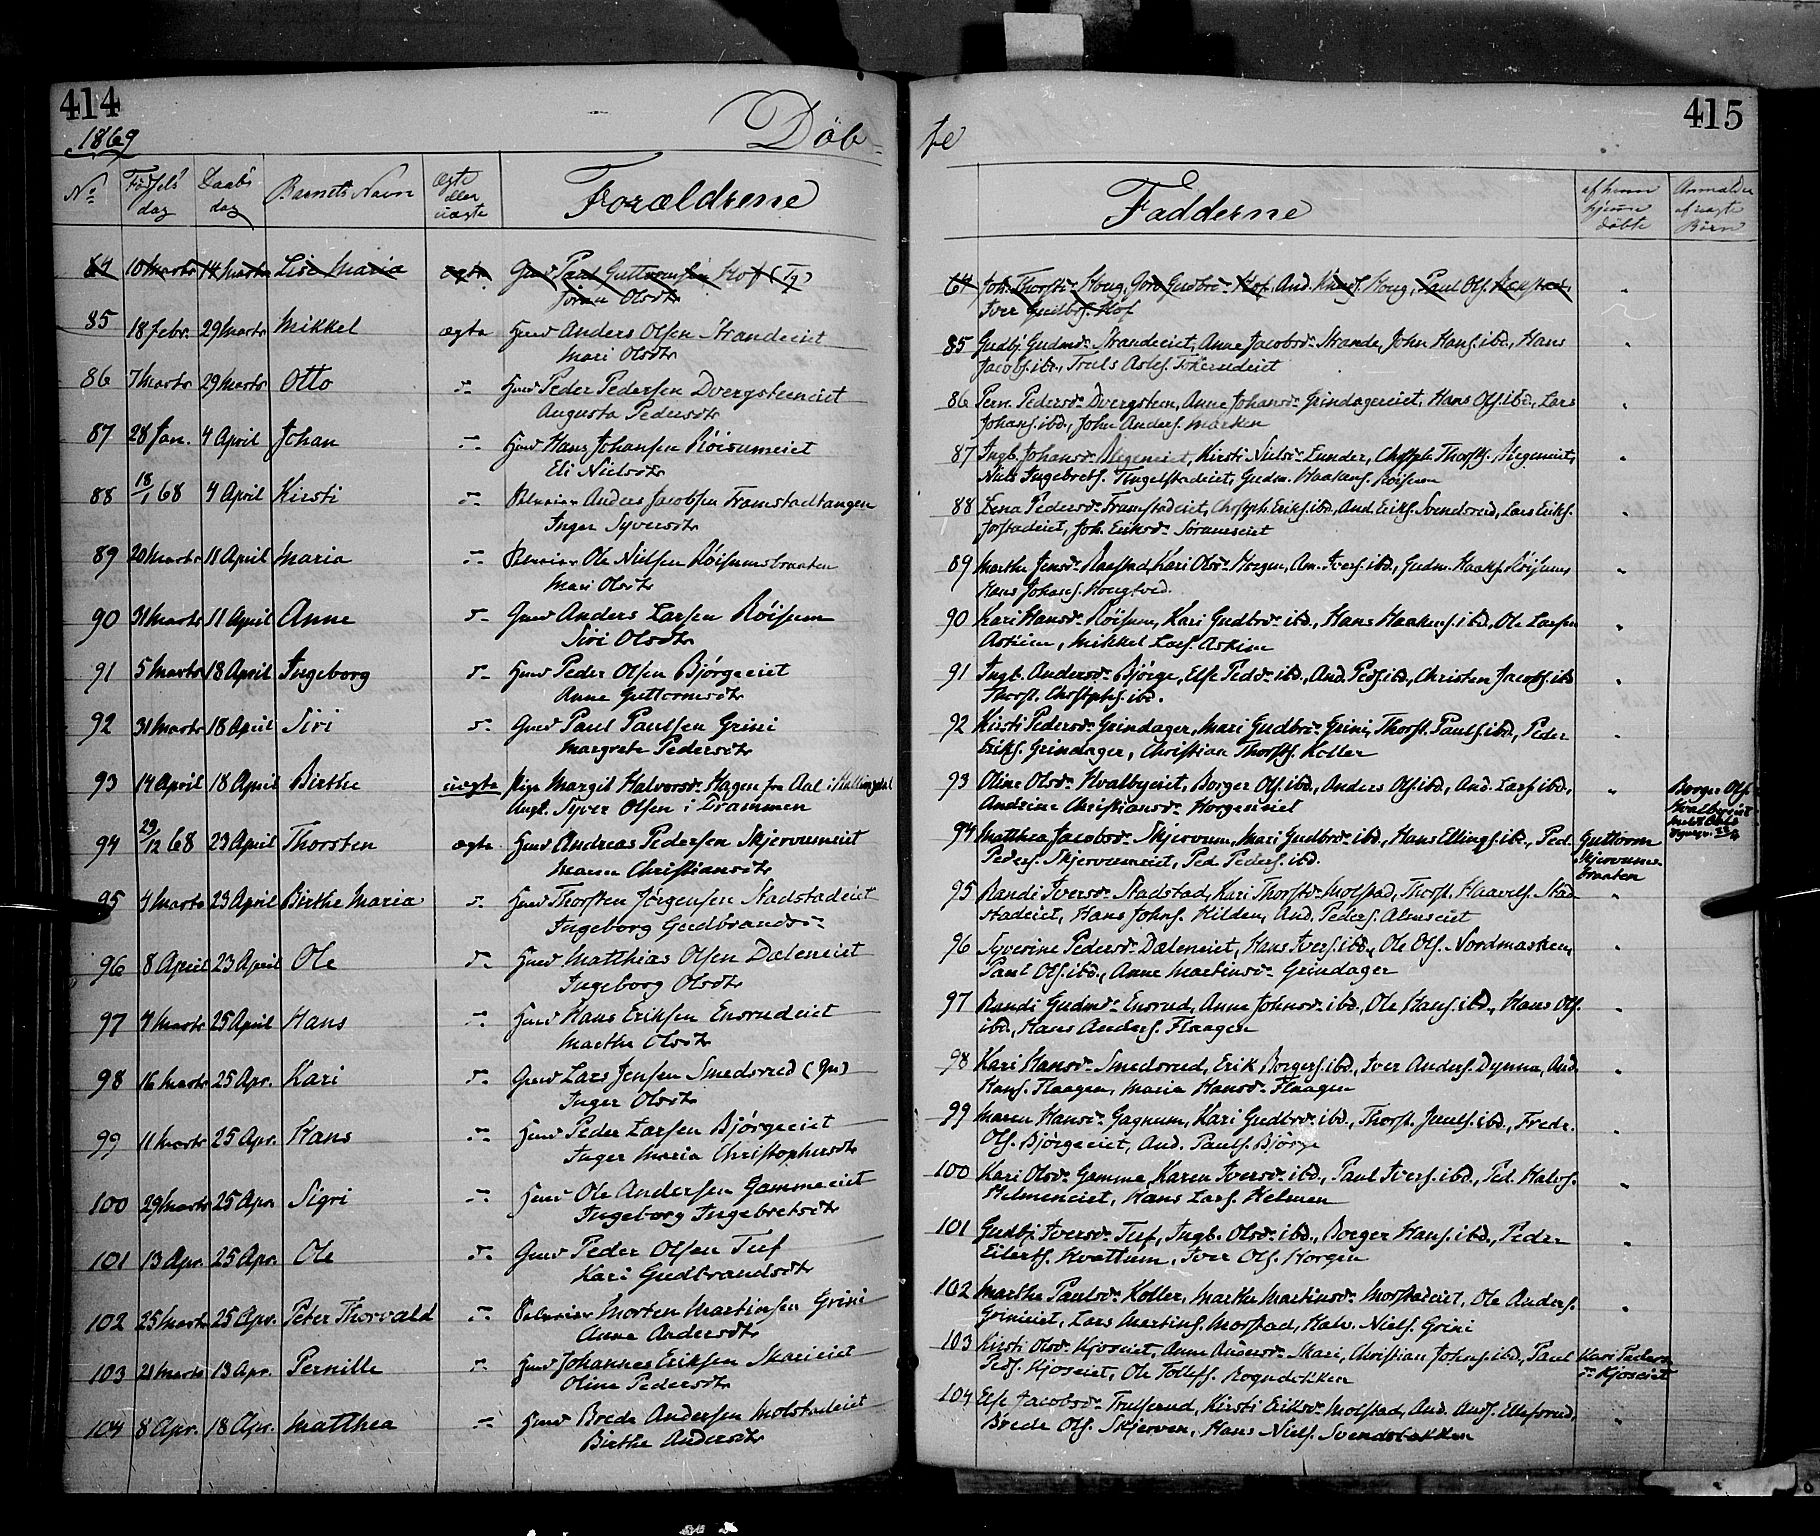 414
1869
Døb-
No
Fødsels dag
Daabs dag
Barnets Navn
Ægte eller uægte
Forældrene
84 10 Marts 14 Marts Lise Maria ægte Gmd Paul Guttormsen Hof (Ig)
Jøran Olsdtr
85 18 Febr. 29 Marts Mikkel ægte Husmd Anders Olsen Strandeiet
Mari Olsdtr
86 7 Marts 29 Marts Otto Husmd Peder Pedersen Dvergsteneiet
Augusta Pedersdtr
87 28 Jan. 4 April Johan Husmd Hans Johansen Røisumeiet
Eli Nielsdtr
88 18/1 68 4 April Kirsti Anders Jacobsen Framstadtangen
Inger Syversdtr
89 20 Marts 11 April Maria Ole Nielsen Røisumsbraaten
Mari Olsdtr
90 31 Marts 11 April Anne Gmd Anders Larsen Røisum
Siri Olsdtr
91 5 Marts 18 April Ingeborg Husmd Peder Olsen Bjørgeeiet
Anne Guttormsdtr
92 31 Marts 18 April Siri Gmd Paul Paulsen Grini
Margrete Pedersdtr
93 14 April 18 April Birthe uægte Pige Margit Halvorsdr Hagen fra Aal i Hallingdal
Ungk. Syver Olsen i Drammen
94 29/12 68 23 April Thorsten ægte Husmd Andreas Pedersen Skjervumeiet
Maren Christiansdtr
95 4 Marts 23 April Birthe Maria Husmd Thorsten Jørgensen Stadstadeiet
Ingeborg Gudbrandsdr
96 8 April 23 April Ole Husmd Matthias Olsen Dæleneiet
Ingeborg Olsdtr
97 4 Marts 25 April Hans Husmd Hans Eriksen Ensrudeiet
Marthe Olsdtr
98 16 Marts 25 Apr. Kari Gmd Lars Jensen Smedsrud
Inger Olsdtr
99 11 Marts 25 Apr. Hans Husmd Peder Larsen Bjørgeeiet
Inger Maria Christophersdtr
100 29 Marts 25 Apr. Sigri Husmd Ole Andersen Gammeeiet
Ingeborg Ingebretsdtr
101 13 Apr. 25 Apr. Ole Gmd Peder Olsen Tuf
Kari Gudbrandsdtr
102 25 Marts 25 Apr. Peter Thorvald Morten Martinsen Grini
Anne Andersdtr
103 21 Marts 13 Apr. Pernille Husmd Johannes Eriksen Skarieiet
Oline Pedersdtr
104 8 Apr. 18 Apr. Matthea Husmd Brede Andersen Molstadeiet
Birthe Andersdtr
415
te
Fadderne
af hvem hjemme døbte
Anmeldte af uægte Børn
64 Joh. Thorstd. Houg, Goro Gudbrd. Hof, And. Knuds. Houg, Paul Ols.
Iver Gudbrs. Hof
85 Gudbj. Gudmd. Strandeiet, Anne Jacobsd. Strande, John Hans. ibd., Hans
Jacobs. ibd., Truls Asles.
86 Pern. Pedersd. Dvergsten, Anne Johansd. Grindagereiet, Hans Ols. ibd., Lars
Johans. ibd., John Anders. Marken
87 Ingb. Johansd. Kirsti Nielsd. Lunder, Chstph. Thorsts.
Niels Ingebrets. Tingelstadeiet, Gudm. Haakens. Røisum
88 Lena Pedersd. Framstadeiet, Chstph. Eriks. ibd., And. Eriks. Svendsrud, Lars Eriks.
Joh. Eriksd.
89 Marthe Jensd. Raastad, Kari Olsd. Horgen, An. Ivers. ibd., Gudm. Haaks. Røisum,
Hans Johans. Hougtved.
90 Kari Hansd. Røisum, Kari Gudbrd. ibd., Hans Haakens. ibd., Ole Larsen
Askim, Mikkel Lars. Askim
91 Ingb. Andersd. Bjørge, Else Pedsd. ibd., And. Peds. ibd., Christen Jacobs. ibd.
Thorst. Chrstphs. ibd.
92 Kirsti Pedersd. Grindager, Mari Gudbrd. Grini, Thorst. Pauls. ibd., Peder
Eriks. Grindager, Christian Thorsts. Koller
93 Oline Olsd. Hvalbyeiet, Borger Ols. ibd., Anders Ols. ibd., And. Lars. ibd.,
Andrine Christiansd. Horgeneiet
Borger Ols.
Hvalbyeiet
94 Matthea Jacobsd. Skjervum, Mari Gudbrd. ibd., Hans Ellings. ibd., Ped.
Peders. Skjervumeiet, Ped. Peders. ibd.
Guttorm
Skjervums-
braaten
95 Randi Iversd. Stadstad, Kari Thorstd. Molstad, Thorst. Haavels. Stad-
stadeiet, Hans Johns. Kilden, And. Peders. Almseiet
96 Syverine Pedersd. Dæleneiet, Hans Ivers. ibd., Ole Ols. Nordmarken,
Paul Ols. ibd., Anne Martinsd. Grindager
97 Randi Gudmd. Ensrud, Anne Johnsd. ibd., Ole Hans. ibd., Hans Ols.
ibd., Hans Anders. Flaagen
98 Kari Hansd. Smedsrud, Erik Borgers. ibd., Iver Anders. Dynna, And.
Hans. Flaagen, Maria Hansd. Flaagen
99 Maren Hansd. Gagnum, Kari Gudbrd. ibd., Thorst. Pauls. ibd., Fredr.
Ols. Bjørgeeiet, And. Pauls. Bjørge
100 Kari Olsd. Gamme, Karen Iversd. ibd., Paul Ivers. ibd., Ped. Halvs.
Helmeneiet, Hans Lars. Helmen
101 Gudbj. Iversd. Tuf, Ingb. Olsd. ibd., Borger Hans. ibd., Peder
Eilerts. Hvattum, Iver Ols. Horgen
102 Marthe Paulsd. Koller, Marthe Martinsd. Morstadeiet, Ole Anders.
Grinieiet, Lars Martins. Morstad, Halv. Niels. Grini
103 Kirsti Olsd. Kjoseiet, Anne Andersd. Skari, Christian Johns. ibd., Paul
Peds. Kjoseiet, Ole Tollefs. Rognebakken
Kari Peders-
d. Kjoseiet
104 Else Jacobsd. Trulserud, Kirsti Eriksd. Molstad, And. Ands. Ellefsrud,
Brede Ols. Skjerven, Hans Niels. Svendsbakken